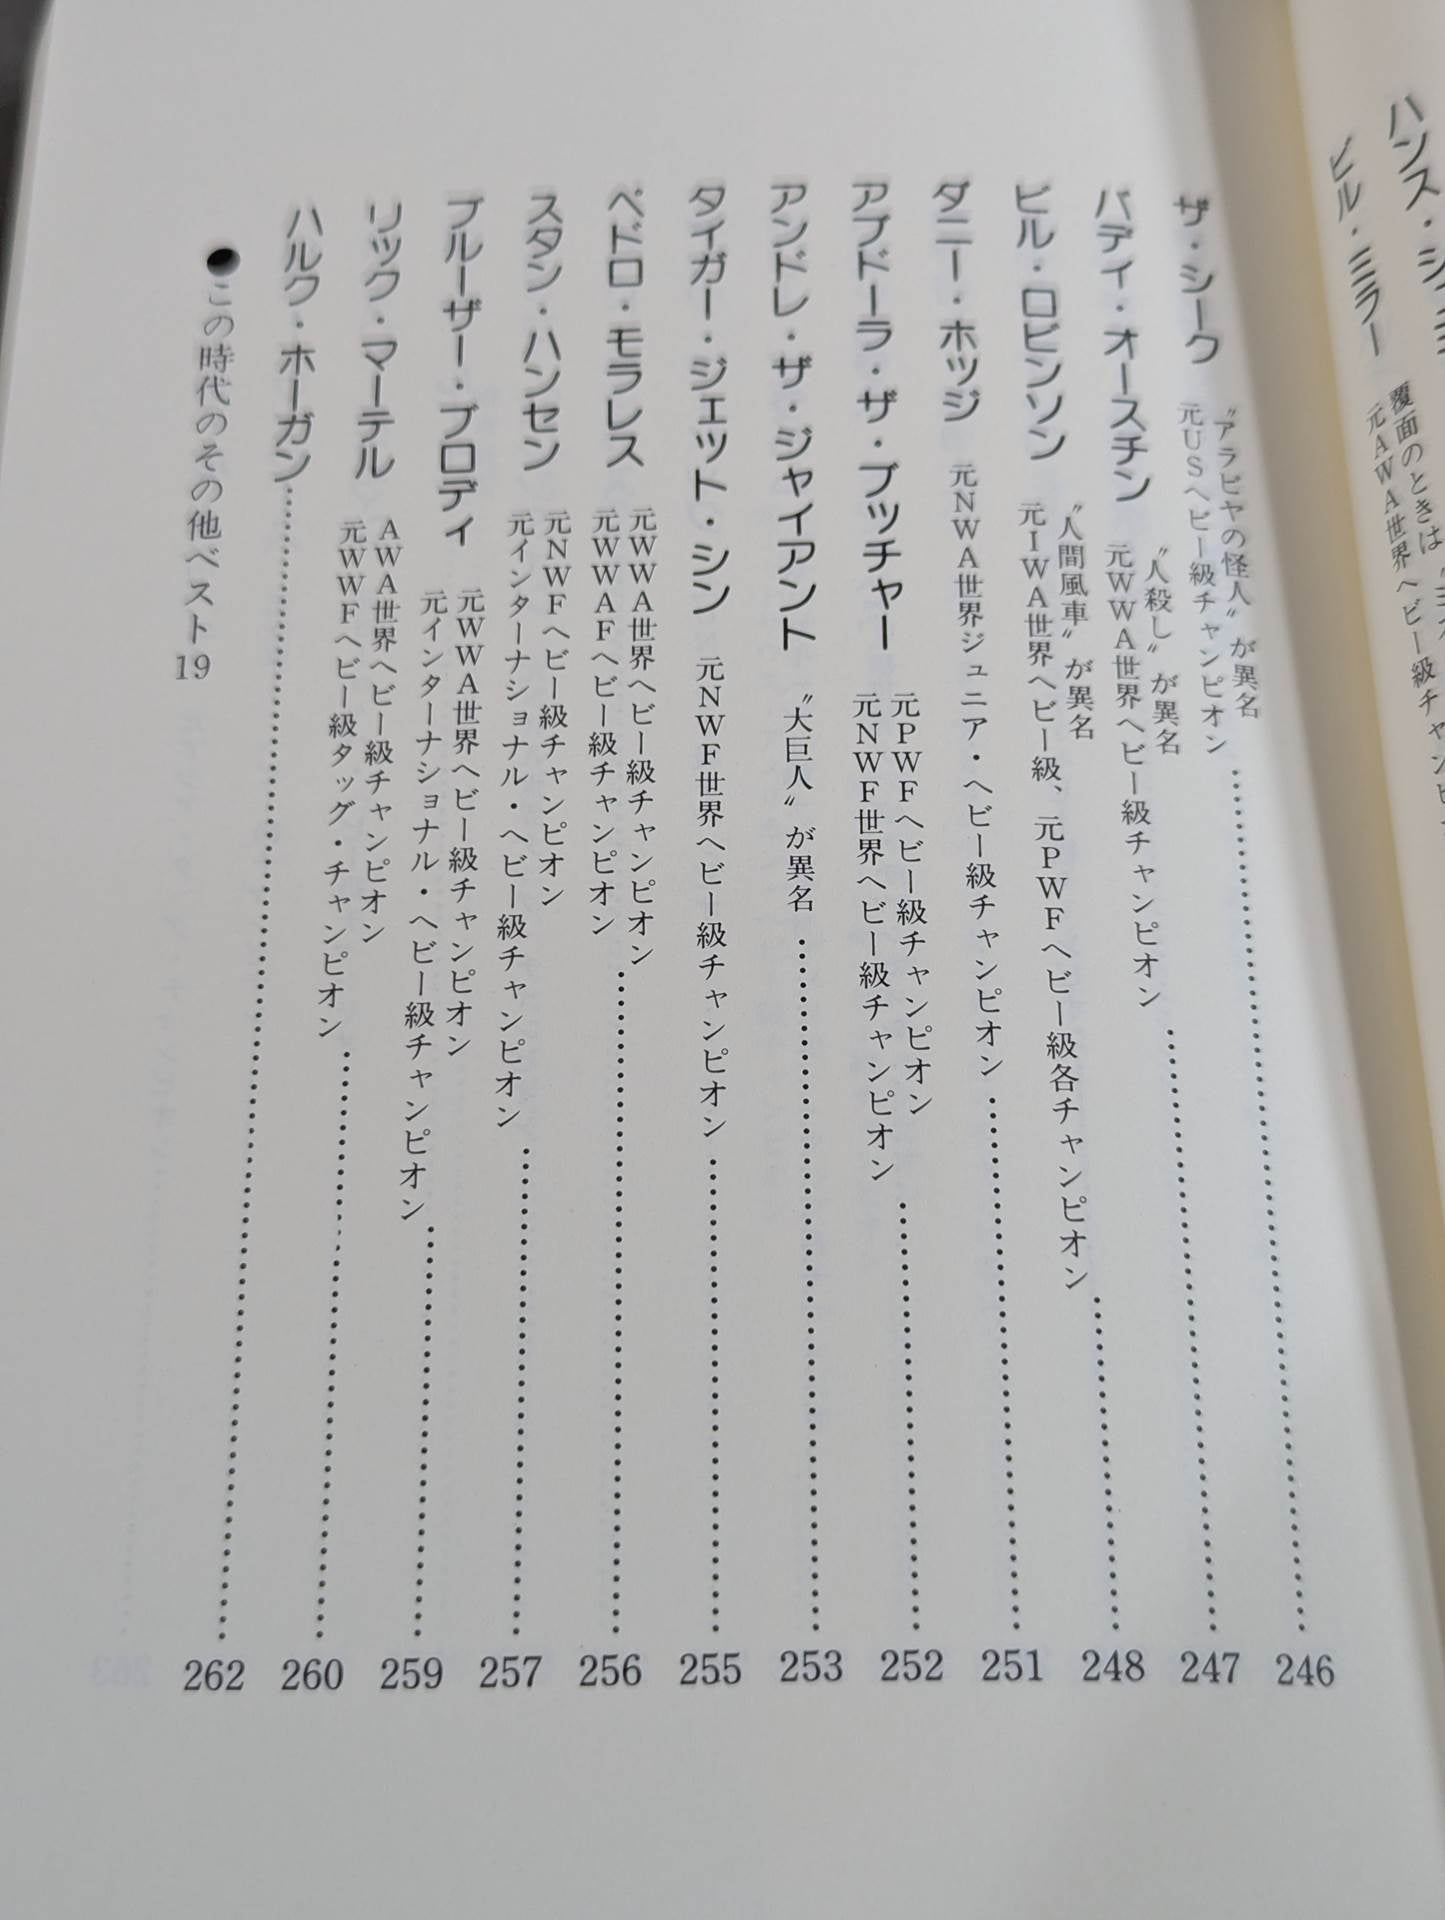 ハンス・シュミット
ビル・ミラー
覆面のときは
元AWA世界ヘビー級チャンピ
ザ・シーク
〝アラビヤの怪人〟が異名
元USヘビー級チャンピオン
246
バディ・オースチン
〝人殺し〟が異名
元WWA世界ヘビー級チャンピオン
247
ビル・ロビンソン
〝人間風車〟が異名
元IWA世界ヘビー級、元PWFヘビー級各チャンピオン
248
ダニー・ホッジ
元NWA世界ジュニア・ヘビー級チャンピオン
251
アブドーラ・ザ・ブッチャー
元PWFヘビー級チャンピオン
元NWF世界ヘビー級チャンピオン
252
アンドレ・ザ・ジャイアント
〝大巨人〟が異名
253
タイガー・ジェット・シン
元NWF世界ヘビー級チャンピオン
255
ペドロ・モラレス
元WWA世界ヘビー級チャンピオン
元WWAFヘビー級チャンピオン
256
スタン・ハンセン
元NWFヘビー級チャンピオン
元インターナショナル・ヘビー級チャンピオン
257
ブルーザー・ブロディ
元WWA世界ヘビー級チャンピオン
元インターナショナル・ヘビー級チャンピオン
259
リック・マーテル
AWA世界ヘビー級チャンピオン
元WWFヘビー級タッグ・チャンピオン
260
ハルク・ホーガン
262
●この時代のその他ベスト19